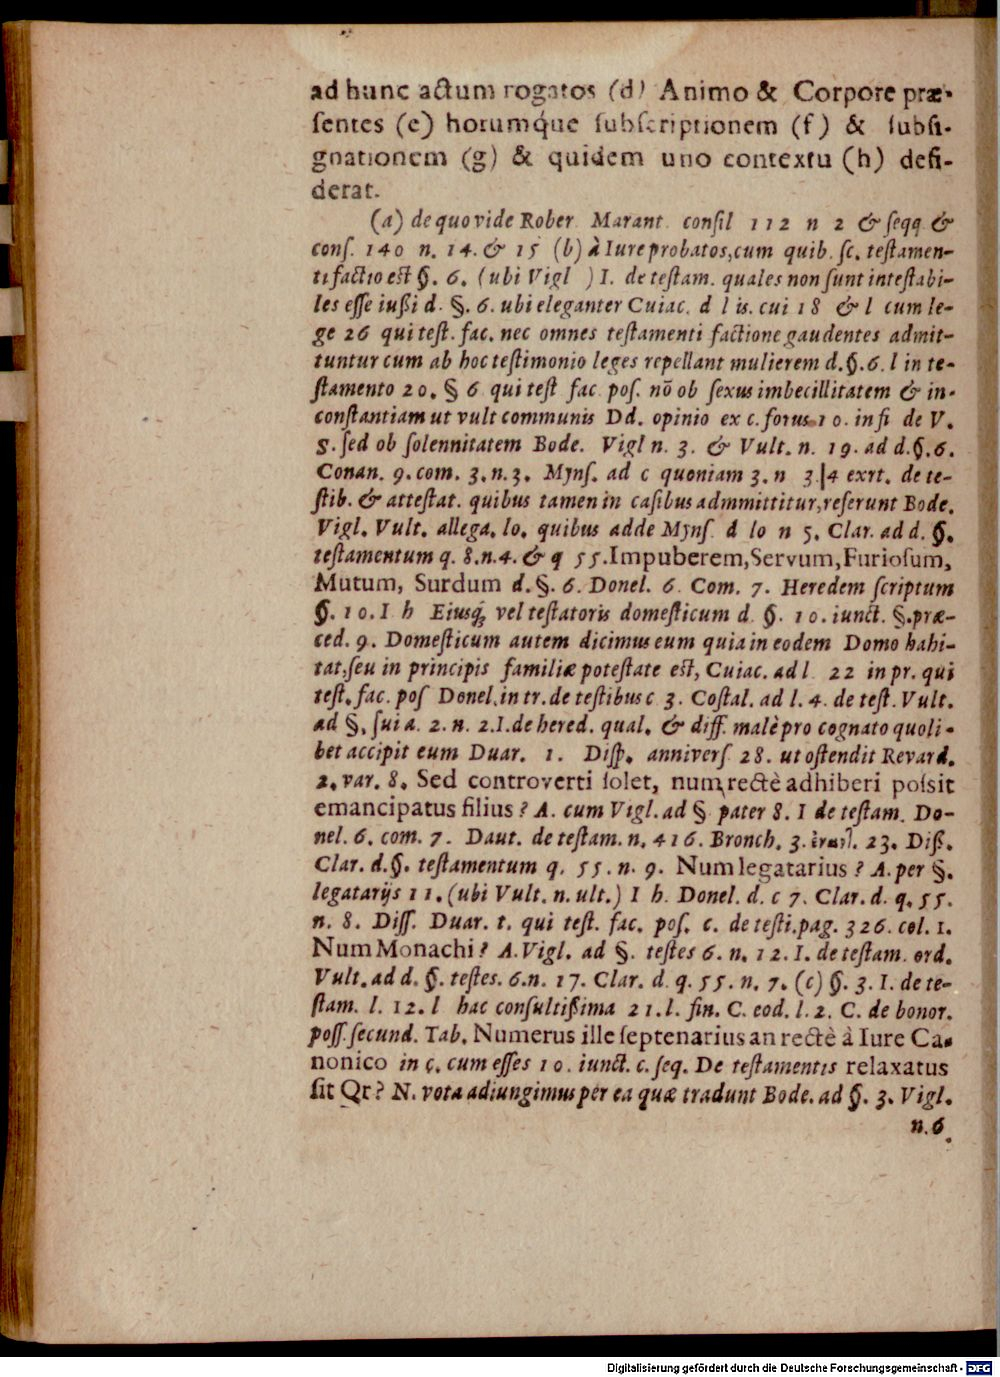 ad hunc actum rogatos (d) Animo & Corpore præ-
ſentes (e) horumq́ue ſubſcriptionem (f) & ſubſi-
gnationem (g) & quidem uno contextu (h) deſi-
derat.
(a) de quo vide Rober Marant conſil 112 n 2 & ſeqq &
conſ. 140 n. 14. & 15 (b) à Iure probatos, cum quib. ſc. teſtamen-
ti factio eſt §. 6. (ubi Vigl ) I. de teſtam. quales non ſunt inteſtabi-
les eſſe iußi d. §. 6. ubi eleganter Cuiac. d l is. cui 18 & l cum le-
ge 26 qui teſt. fac. nec omnes teſtamenti factione gaudentes admit-
tuntur cum ab hoc teſtimonio leges repellant mulierem d. §. 6. l in te-
ſtamento 20. § 6 qui teſt fac poſ. nō ob ſexus imbecillitatem & in-
conſtantiam ut vult communis Dd. opinio ex c. forus 10. in fi de V.
S. ſed ob ſolennitatem Bode. Vigl n. 3. & Vult. n. 19. ad d. §. 6.
Conan. 9. com. 3. n. 3. Mynſ. ad c quoniam 3. n 3.|4 exrt. de te-
ſtib. & atteſtat. quibus tamen in caſibus admmittitur, referunt Bode.
Vigl. Vult. allega. lo. quibus adde Mynſ d lo n 5. Clar. ad d. §.
teſtamentum q. 8. n. 4. & q 55. Impuberem, Servum, Furioſum,
Mutum, Surdum d. §. 6. Donel. 6. Com. 7. Heredem ſcriptum
§. 10. I h Eiusq́ vel teſtatoris domeſticum d. §. 10. iunct. §. præ-
ced. 9. Domeſticum autem dicimus eum quia in eodem Domo habi-
tat, ſeu in principis familiæ poteſtate eſt, Cuiac. ad l 22 in pr. qui
teſt. fac. poſ Donel. in tr. de teſtibus c 3. Coſtal. ad l. 4. de teſt. Vult.
ad §. ſui a. 2. n. 2. I. de hered. qual. & diff. malè pro cognato quoli-
bet accipit eum Duar. 1. Diſp. anniverſ 28. ut oſtendit Revard.
2. var. 8. Sed controverti ſolet, num rectè adhiberi poſsit
emancipatus filius? A. cum Vigl. ad § pater 8. I de teſtam. Do-
nel. 6. com. 7. Daut. de teſtam. n. 416. Bronch. 3. 23. Diß.
Clar. d. §. teſtamentum q. 55. n. 9. Num legatarius? A. per §.
legatarijs 11. (ubi Vult. n. ult.) I h. Donel. d. c 7. Clar. d. q. 55.
n. 8. Diſſ. Duar. t. qui teſt. fac. poſ. c. de teſti. pag. 326. col. 1.
Num Monachi? A. Vigl. ad §. teſtes 6. n. 12. I. de teſtam. ord.
Vult. ad d. §. teſtes. 6. n. 17. Clar. d. q. 55. n. 7. (c) §. 3. I. de te-
ſtam. l. 12. l hac conſultißima 21. l. fin. C. eod. l. 2. C. de bonor.
poſſ. ſecund. Tab. Numerus ille ſeptenarius an rectè à Iure Ca-
nonico in c. cum eſſes 10. iunct. c. ſeq. De teſtamentis relaxatus
ſit Qr? N. vota adiungimus per ea quæ tradunt Bode. ad §. 3. Vigl.
n. 6.
Digitalisierung gefördert durch die Deutsche Forschungsgemeinschaft - DFG